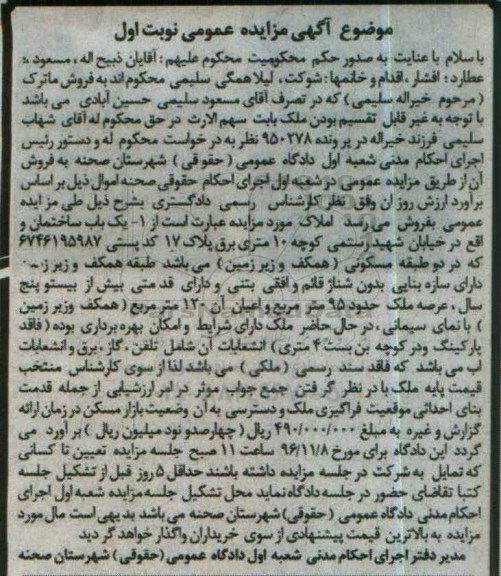 موضوع آگهی مزایده عمومی نوبت اول
با سلام با عنایت به صدور حکم محکومیت محکوم علیهم : آقایان ذبیح اله ، مسعود ،
عطارد ؛ افشار ، اقدام و خانمها : شوکت ، لیلا همگی سلیمی محکوم اند به فروش ماترک
( مرحوم خیراله سلیمی ) که در تصرف آقای مسعود سلیمی حسین آبادی می باشد
با توجه به غیر قابل تقسیم بودن ملک بابت سهم الارث در حق محکوم له آقای شهاب
سلیمی فرزند خیراله در پرونده ۹۵۰۲۷۸ نظر به در خواست محکوم له و دستور رئیس
اجرای احکام مدنی شعبه اول دادگاه عمومی ( حقوقی ) شهرستان صحنه به فروش
آن از طریق مزایده عمومی در شعبه اول اجرای احکام حقوقی صحنه اموال ذیل بر اساس
برآورد ارزش روز ان وفق نظر کارشناس رسمی دادگستری بشرح ذیل طی مزایده
عمومی بفروش می رسد املاک مورد مزایده عبارت است از ۱- یک باب ساختمان و
اقع در خیابان شهید رستمی کوچه ۱۰ متری برق پلاک ۱۷ کد پستی ۶۷۴۶۱۹۵۹۸۷
که در دو طبقه مسکونی ( همکف و زیر زمین ) می باشد طبقه همکف و زیر ز
دارای سازه بنایی بدون شناژ قائم و افقی بتنی و دارای قدمتی بیش از بیستو پنج
سال ، عرصه ملک حدود ۹۵ متر مربع و اعیان آن ۱۲۰ متر مربع ( همکف وزیر زمین
) با نمای سیمانی ، در حال حاضر ملک دارای شرایط و امکان بهره برداری بوده ( فاقد
پارکینگ ودر کوچه بن بست ۴ متری ) انشعابات آن شامل تلفن ، گاز ، برق و انشعابات
اب می باشد که فاقد سند رسمی ( ملکی ) می باشد لذا از سوی کارشناس منتخب
قیمت پایه ملک با در نظر گرفتن جمع جواب موثر در امر ارزشیابی از جمله قدمت
بنای احداثی موقعیت فراگیری ملک و دسترسی به آن وضعیت بازار مسکن در زمان ارائه
گزارش و غیره به مبلغ ۴۹۰/۰۰۰/۰۰۰ ریال ( چهارصدو نود میلیون ریال ) بر آورد می
گردد این دادگاه برای مورخ ۹۶/۱۱/۸ ساعت ۱۱ صبح جلسه مزایده تعیین تا کسانی
که تمایل به شرکت در جلسه مزایده داشته باشند حداقل ۵ روز قبل از تشکیل جلسه
کتبا تقاضای حضور در جلسه دادگاه نماید محل تشکیل جلسه مزایده شعبه اول اجرای
احکام مدنی دادگاه عمومی ( حقوقی ) شهرستان صحنه می باشد بدیهی است مال مورد
مزایده به بالاترین قیمت پیشنهادی از سوی خریداران واگذار خواهد گردید
مدیر دفتر اجرای احکام مدنی شعبه اول دادگاه عمومی (حقوقی ) شهرستان صحنه